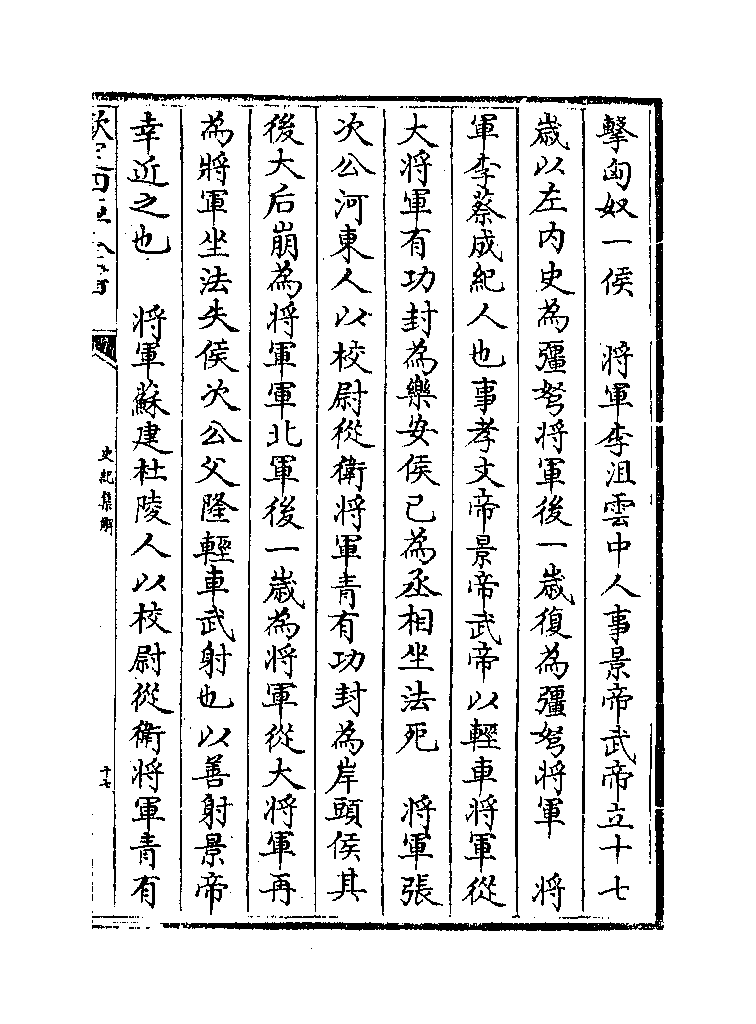 擊匈奴一侯　將軍李沮雲中人事景帝武帝立十七
歳以左内史為彊弩將軍後一歳復為彊弩將軍　將
軍李蔡成紀人也事孝文帝景帝武帝以輕車將軍從
大將軍有功封為樂安侯已為丞相坐法死　將軍張
次公河東人以校尉從衛將軍青有功封為岸頭侯其
後大后崩為將軍軍北軍後一歳為將軍從大將軍再
為將軍坐法失侯次公父隆輕車武射也以善射景帝
幸近之也　將軍蘇建杜陵人以校尉從衛將軍青有
史記集解
十七